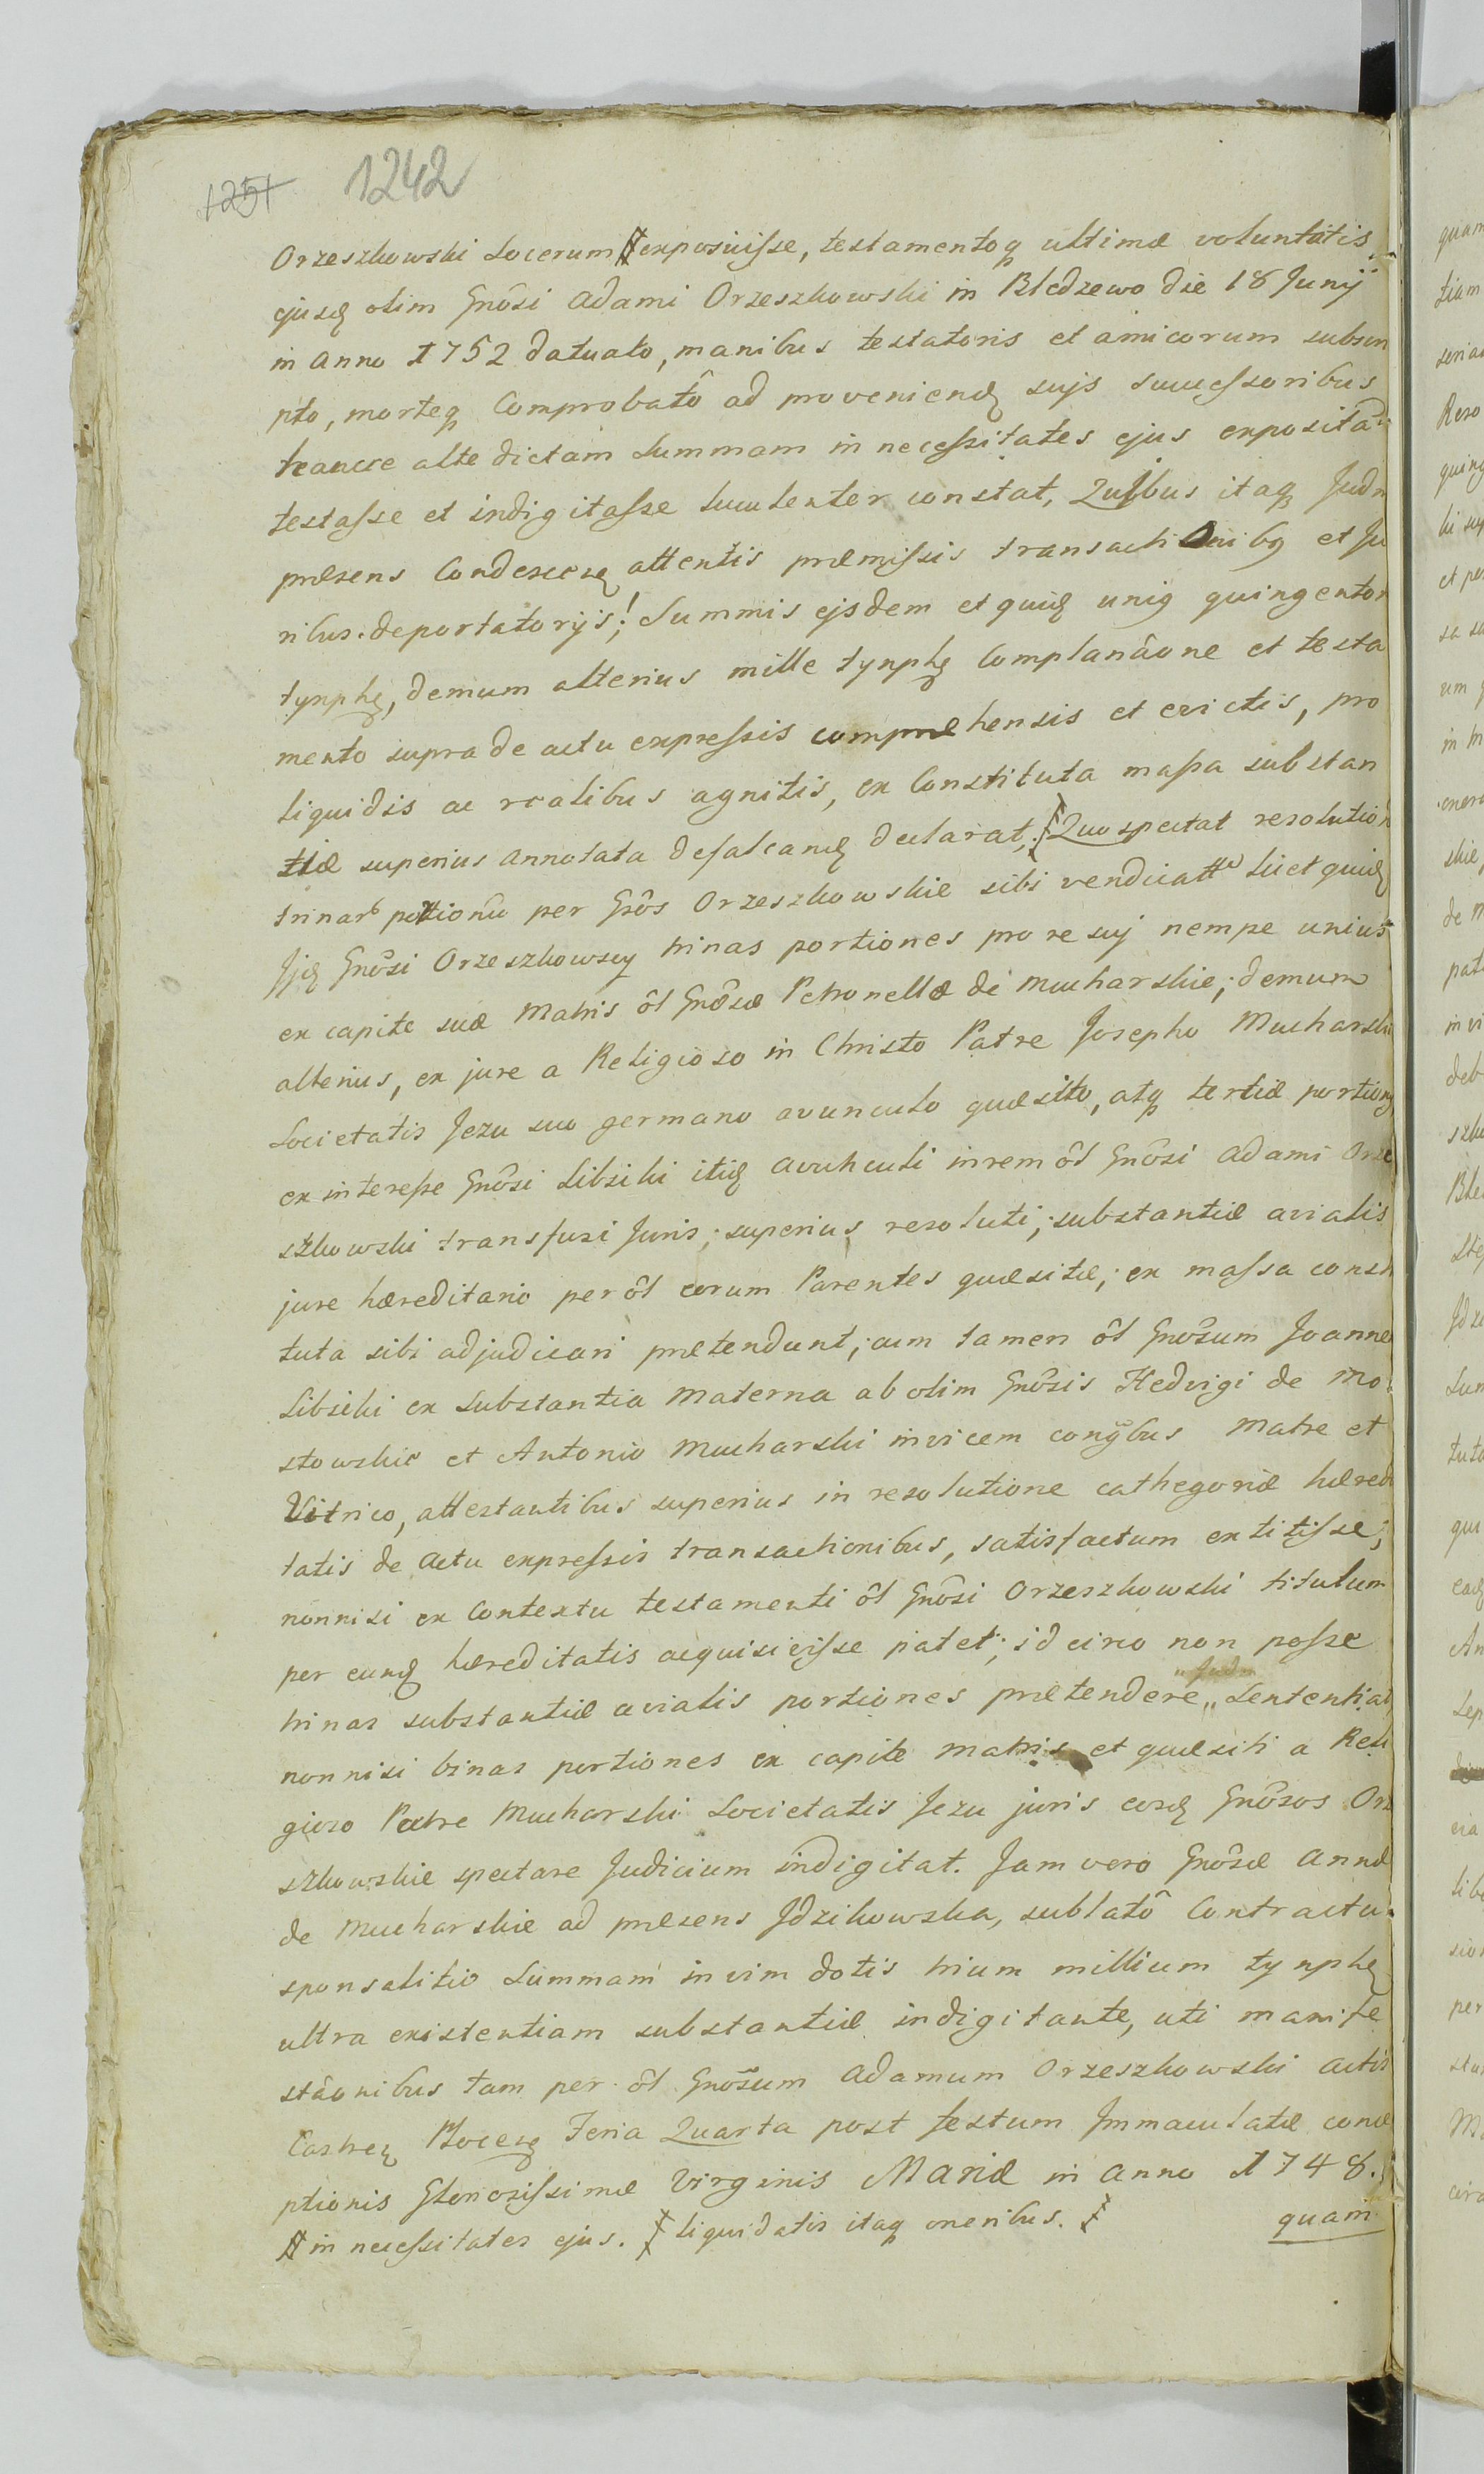 1251 1242
Orzeszkowski Socerum # exposuisse, testamentoq ultimæ voluntatis
ejusq olim Gnôsi Adami Orzeszkowski in Bledzewo die 18 Junij
in Anno 1752 datuato, manibus testatoris et amicorum subscri
pto, morteq Comprobatô ad provenienq sujs successoribus
hancce alte dictam Summam in necessitates ejus expositā
testasse et indigitasse luculenter constat, Quibus itaq Judm
præsens Condescenq attentis præmissis transactionibq et Ju
ribus deportatorijs; Summis ejsdem et quidq uniq quingentor
tynphq, demum alterius mille tynphq Complanâone et testa
mento supra de actu expressis compræhensis et evictis, pro
liquidis ac realibus agnitis, ex Constituta massa substan
tiæ superius annotata defalcandq declarat, Quo spectat resolution
trinar portionū per Gnôs Orzeszkowskie sibi vendicatt licet quidq
Ijdq Gnôsi Orzeszkowscy trinas portiones pro re suj nempe unius
ex capite suæ Matris ôl Gnôsæ Petronellæ de Mucharskie; demum
alterius, ex jure a Religioso in Christo Patre Josepho Mucharski
Societatis Jezu suo germano avunculo quæsito, atq tertiæ portionq
ex interesse Gnôsi Libicki itidq avunculi in rem ôl Gnôsi Adami Orze
szkowski transfusi Juris; superius resoluti; substantiæ avialis
jure hæreditario per ôl eorum Parentes quæsitæ; ex massa consti
tuta sibi adjudicari prætendunt; cum tamen ôl Gnôsum Joannem
Libicki ex Substantia Materna ab olim Gnôsis Hedvigi de Mo
stowskie et Antonio Mucharski invicem conjgbus Matre et
Vitrico, attestantibus superius in resolutione cathegoriæ hæredi
tatis de actu expressis transactionibus, satisfactum extitisse;
nonnisi ex Contextu testamenti ôl Gnôsi Orzeszkowski titulum
per eundq hæreditatis acquisivisse patet; idcirco non posse
trinas substantiæ avialis portiones prætendere „Judm„ Sententiat,
nonnisi binas portiones ex capite Matris et quæsiti a Reli
gioso Patre Mucharski Societatis Jezu juris eosdq Gnôsos Orze
szkowskie spectare Judicium indigitat. Jam vero Gnôsæ Annæ
de Mucharskie ad præsens Idzikowska, sublatô Contractu
sponsalitio Summam in vim dotis trium millium tynphq
ultra existentiam substantiæ indigitante, uti manife
stâonibus tam per ôl Gnôsum Adamum Orzeszkowski Actis
Castreq Plocesq Feria Quarta post festum Immaculatæ conce
ptionis Gloriosissimæ Virginis Mariæ in Anno 1748.
# in necessitates ejus. ‡ liquidatis itaq oneribus. ‡ quam